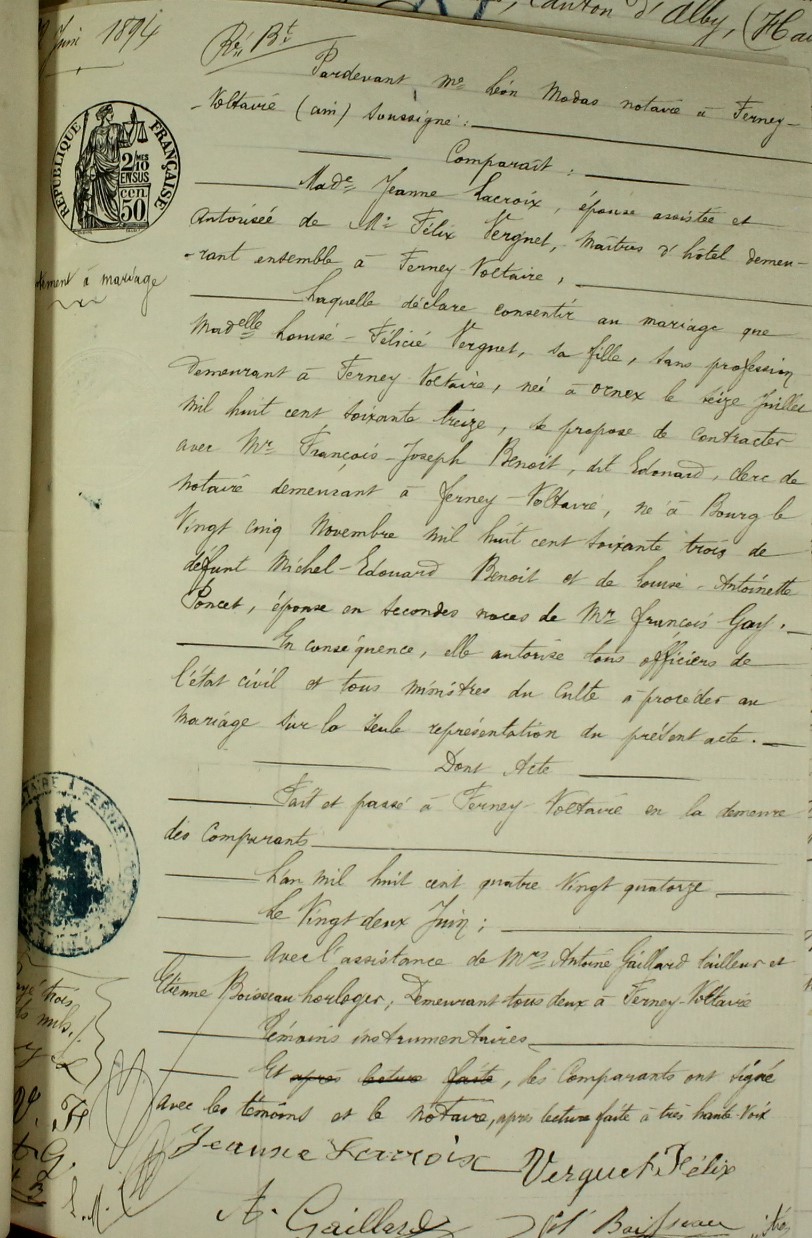 , Canton d'Alby, (Hau
Juin 1894
Ré. Bt.
Pardevant Me Léon Modas notaire à Ferney-
-Voltaire (ain) soussigné :
Comparaît :
Made Jeanne Lacroix, épouse assistée et
Autorisée de Mr Félix Verguet, Maîtres d'hôtel demeu-
-rant ensemble à Ferney Voltaire,
Laquelle déclare consentir au mariage que
Madelle Louise-Félicie Verguet, sa fille, sans profession
Demeurant à Ferney Voltaire, neé à Ornex le seize Juillet
Mil huit cent soixante treize, se propose de contracter
avec Mr François-Joseph Benoît, dit Edouard, clerc de
notaire demeurant à Ferney-Voltaire, né à Bourg le
Vingt cinq Novembre mil huit cent soixante trois de
défunt Michel-Edouard Benoit et de Louise-Antoinette
Poncet, épouse en secondes noces de Mr François Gay.
En conséquence, elle autorise tous officiers de
l'état civil et tous ministres du culte à procéder au
mariage sur la seule représentation du présent acte.
Dont Acte
Fait et passé à Ferney Voltaire en la demeure
des Comparants
L'an mil huit cent quatre vingt quatorze
Le Vingt deux Juin ;
Avec l'assistance de Mrs Antoine Gaillard tailleur et
Etienne Boisseau horloger, Demeurant tous deux à Ferney-Voltaire
Témoins instrumentaires
Et après lecture faite, les Comparants ont signé
avec les témoins et le notaire, après lecture faite à très haute voix
Jeanne Lacroix Verguet Félix
A. Gaillard Et Boisseau
RÉPUBLIQUE FRANÇAISE
2/10 MES
EN SUS
50 cen
tement à mariage
TAIRE À FERNEY
trois
L. M.